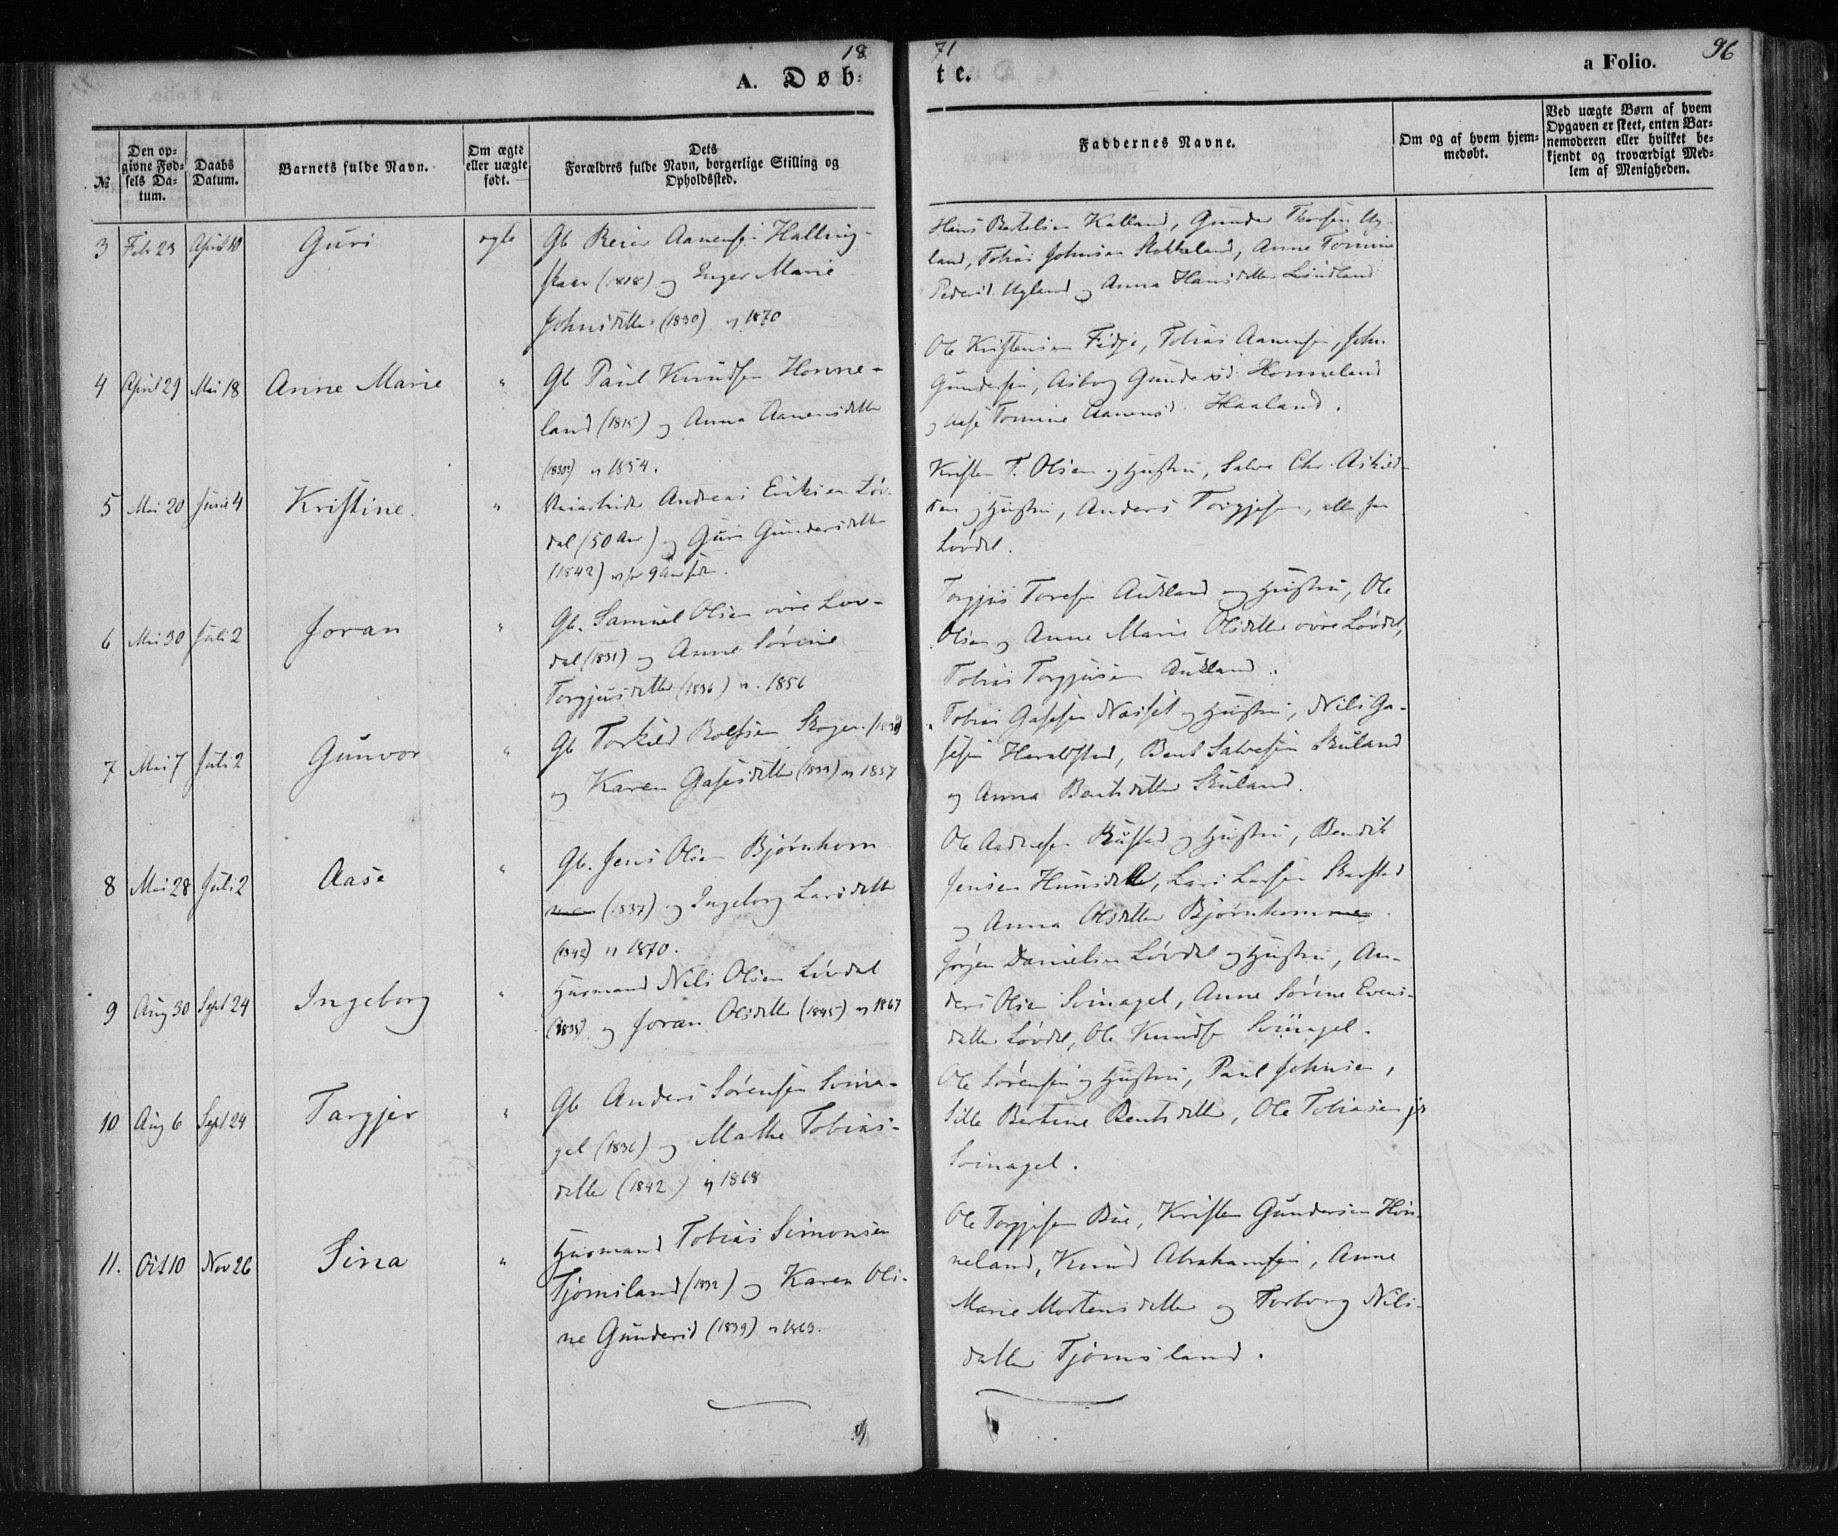 18 71
A. Døbte.
a Folio. 96
№
Den opgivne Fødsels Datum.
Daabs Datum.
Barnets fulde Navn.
Om ægte eller uægte født.
Dets Forældres fulde Navn, borgerlige Stilling og Opholdssted.
Faddernes Navne.
Om og af hvem hjemmedøbt.
Ved uægte Børn af hvem Opgaven er skeet, enten Barnemoderen eller hvilket bekjendt og troværdigt Medlem af Menigheden.
3 Feb 23 April 10 Guri ægte
Gb Reier Aanensen Halling-
skaar (1818) og Inger Marie
Johnsdatter (1830) v 1870
Hans Bertelsen Kalland, Gunder Thorsen Ug-
land, Tobias Johnsen Stokkeland, Anne Tomine
Pedersd. Ugland og Anna Hansdatter Lindland
4 April 29 Mai 18 Anne Marie "
Gb Paul Knudsen Honne-
land (1815) og Anna Aanensdatter
v 1854.
Ole Kristensen Fidje, Tobias Aanensen, John
Gundersen, Asborg Gundersd. Honneland
og Aase Tomine Aanensd. Haaland.
5 Mai 20 Juni 4 Kristine. "
Andreas Eriksen Løv-
dal (50 Aar) og Guri Gundersdatter
(1842)
Kristen T. Olsen og Hustru, Salve Chr. Askild-
sen og Hustru, Anders Torgjesen, alle fra
Løvdal.
6 Mai 30 Juli 2 Joran "
Gb. Samuel Olsen øvre Løv-
dal (1831) og Anne Sørine
Torgjusdatter (1836) v. 1856
Torgjus Toresen Aukland og Hustru, Ole
Olsen og Anne Marie Olsdatter øvre Løvdal,
Tobias Torgjusen Aukland.
7 Mai 7 Juli 2 Gunvor "
Gb Torkild Rolfsen Skogen
og Karen Gasesdatter (1833) v 1857
Tobias Gasesen Næset og Hustru, Nils Ga-
sesen Haraldstad, Bent Salvesen Skuland
og Anna Bentsdatter Skuland.
8 Mai 28 Juli 2 Aase "
Gb. Jens Olsen Bjørnhom
men (1837) og Ingeborg Larsdatter
(1842) v 1870.
Ole Hustru, Bendik
Jensen Lars Larsen Skarstad
og Anna Olsdatter Bjørnhommen.
9 Aug 30 Sept 24 Ingeborg "
Husmand Nils Olsen Løvdal
(1838) og Joran Olsdatter (1845) v 1867
Jørgen Danielsen Løvdal og Hustru, An-
ders Olsen Svinagel, Anne Sørine Evens-
datter Løvdal, Ole Knudsen Svinagel.
10 Aug 6 Sept 24 Targjer "
Gb Anders Sørensen Svina-
gel (1836) og Malke Tobias-
datter (1842) v 1868
Ole Sørensen og Hustru, Paul Johnsen,
Sille Bertine Bentsdatter, Ole Tobiasen jr
Svinagel.
11. Oct 10 Nov 26 Sina "
Husmand Tobias Simonsen
Tjomsland (1832) og Karen Oli-
ne Gundersd (1839) v 1863.
Ole Torgjesen Bue, Kristen Gundersen Hon-
neland, Knud Abrahamsen, Anne
Marie Mortensdatter og Torborg Nils-
datter Tjomsland.